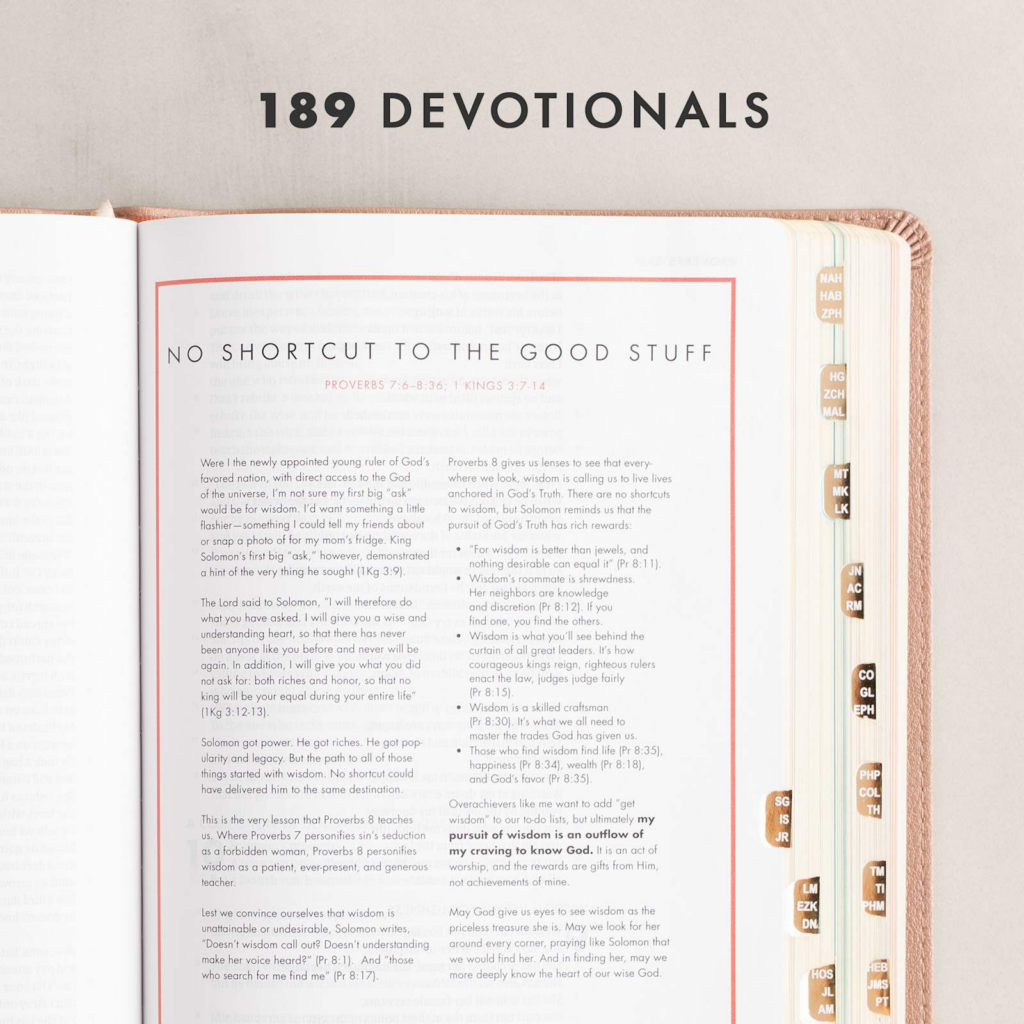 189 DEVOTIONALS
NO SHORTCUT TO THE GOOD STUFF
PROVERBS 7:6–8:36; 1 KINGS 3:7-14
Were I the newly appointed young ruler of God's
favored nation, with direct access to the God
of the universe, I'm not sure my first big "ask"
would be for wisdom. I'd want something a little
flashier—something I could tell my friends about
or snap a photo of for my mom's fridge. King
Solomon's first big "ask," however, demonstrated
a hint of the very thing he sought (1Kg 3:9).
The Lord said to Solomon, "I will therefore do
what you have asked. I will give you a wise and
understanding heart, so that there has never
been anyone like you before and never will be
again. In addition, I will give you what you did
not ask for: both riches and honor, so that no
king will be your equal during your entire life"
(1Kg 3:12-13).
Solomon got power. He got riches. He got pop-
ularity and legacy. But the path to all of those
things started with wisdom. No shortcut could
have delivered him to the same destination.
This is the very lesson that Proverbs 8 teaches
us. Where Proverbs 7 personifies sin's seduction
as a forbidden woman, Proverbs 8 personifies
wisdom as a patient, ever-present, and generous
teacher.
Lest we convince ourselves that wisdom is
unattainable or undesirable, Solomon writes,
"Doesn't wisdom call out? Doesn't understanding
make her voice heard?" (Pr 8:1). And "those
who search for me find me" (Pr 8:17).
Proverbs 8 gives us lenses to see that every-
where we look, wisdom is calling us to live lives
anchored in God's Truth. There are no shortcuts
to wisdom, but Solomon reminds us that the
pursuit of God's Truth has rich rewards:
• "For wisdom is better than jewels, and
nothing desirable can equal it" (Pr 8:11).
• Wisdom's roommate is shrewdness.
Her neighbors are knowledge
and discretion (Pr 8:12). If you
find one, you find the others.
• Wisdom is what you'll see behind the
curtain of all great leaders. It's how
courageous kings reign, righteous rulers
enact the law, judges judge fairly
(Pr 8:15).
• Wisdom is a skilled craftsman
(Pr 8:30). It's what we all need to
master the trades God has given us.
• Those who find wisdom find life (Pr 8:35),
happiness (Pr 8:34), wealth (Pr 8:18),
and God's favor (Pr 8:35).
Overachievers like me want to add "get
wisdom" to our to-do lists, but ultimately my
pursuit of wisdom is an outflow of
my craving to know God. It is an act of
worship, and the rewards are gifts from Him,
not achievements of mine.
May God give us eyes to see wisdom as the
priceless treasure she is. May we look for her
around every corner, praying like Solomon that
we would find her. And in finding her, may we
more deeply know the heart of our wise God.
NAH
HAB
ZPH
HG
ZCH
MAL
MT
MK
LK
JN
AC
RM
CO
GL
EPH
PHP
COL
TH
SG
IS
JR
TM
TI
PHM
LM
EZK
DN
HEB
JMS
PT
HOS
JL
AM